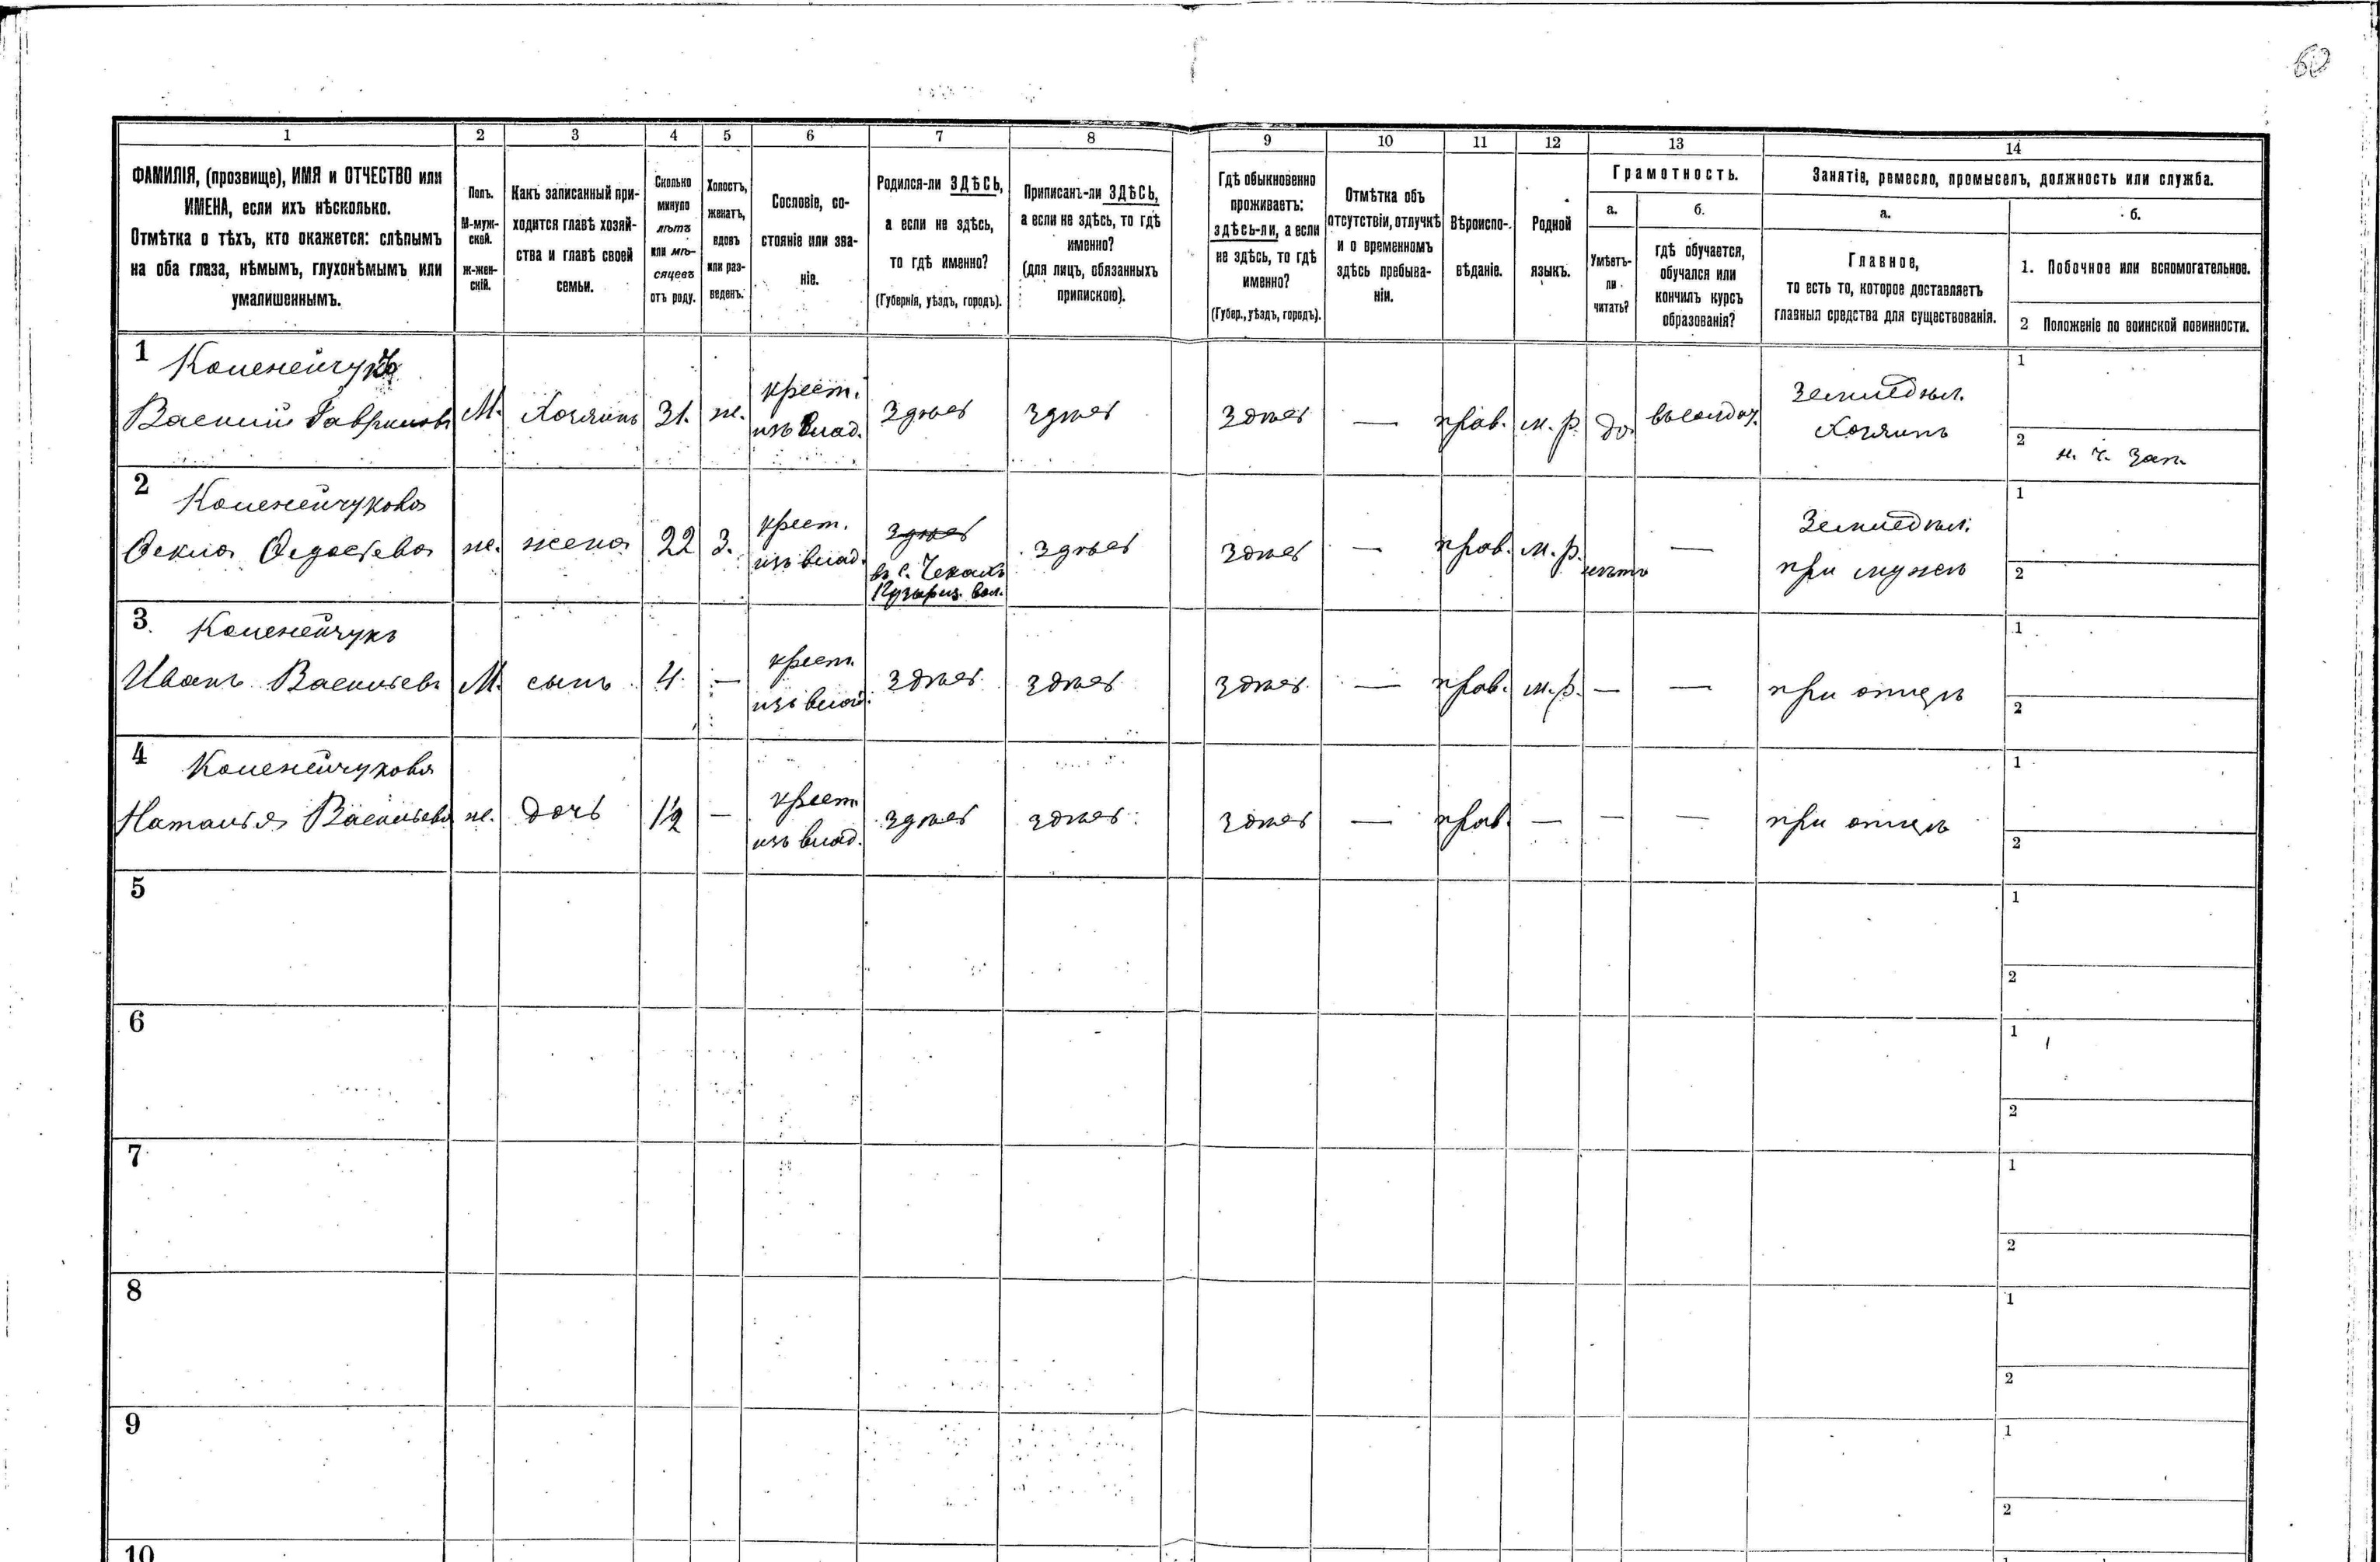 60
1
2
3
4
5
6
7
8
9
10
11
12
13
14
ФАМИЛІЯ, (прозвище), ИМЯ и ОТЧЕСТВО или
ИМЕНА, если ихъ нѣсколько.
Отмѣтка о тѣхъ, кто окажется: слѣпымъ
на оба глаза, нѣмымъ, глухонѣмымъ или
умалишеннымъ.
Полъ.
М-муж-
ской.
ж-жен-
скій.
Какъ записанный при-
ходится главѣ хозяй-
ства и главѣ своей
семьи.
Сколько
минуло
лѣтъ
или мѣ-
сяцевъ
отъ роду.
Холостъ,
женатъ,
вдовъ
или раз-
веденъ.
Сословіе, со-
стояніе или зва-
ніе.
Родился-ли ЗДѢСЬ,
а если не здѣсь,
то гдѣ именно?
(Губернія, уѣздъ, городъ).
Приписанъ-ли ЗДѢСЬ,
а если не здѣсь, то гдѣ
именно?
(для лицъ, обязанныхъ
припискою).
Гдѣ обыкновенно
проживаетъ:
здѣсь-ли, а если
не здѣсь, то гдѣ
именно?
(Губер., уѣздъ, городъ).
Отмѣтка объ
отсутствіи, отлучкѣ
и о временномъ
здѣсь пребыва-
ніи.
Вѣроиспо-
вѣданіе.
Родной
языкъ.
Грамотность.
а.
Умѣетъ-
ли
читать?
б.
гдѣ обучается,
обучался или
кончилъ курсъ
образованія?
Занятіе, ремесло, промыселъ, должность или служба.
а.
Главное,
то есть то, которое доставляетъ
главныя средства для существованія.
б.
1. Побочное или вспомогательное.
2 Положеніе по воинской повинности.
1
Василій Гавриловъ
М.
Хозяинъ
31.
ж.
крест.
изъ влад.
здѣсь
здѣсь
здѣсь
—
прав.
м. р.
да
Земледѣл.
Хозяинъ
1
2 н. ч. зап.
2
Ѳекла Ѳедосѣева
ж.
жена
22
З.
крест.
изъ влад.
здѣсь
въ с.
вол.
здѣсь
здѣсь
—
прав.
м. р.
нѣтъ
—
Земледѣл.
при мужѣ
1
2
3.
Иванъ Васильевъ
М.
сынъ
4
—
крест.
изъ влад.
здѣсь
здѣсь
здѣсь
—
прав.
м. р.
—
—
при отцѣ
1
2
4
Наталья Васильева
ж.
дочь
1/2
—
крест.
изъ влад.
здѣсь
здѣсь
здѣсь
—
прав.
—
—
—
при отцѣ
1
2
5
1
2
6
1
2
7
1
2
8
1
2
9
1
2
10